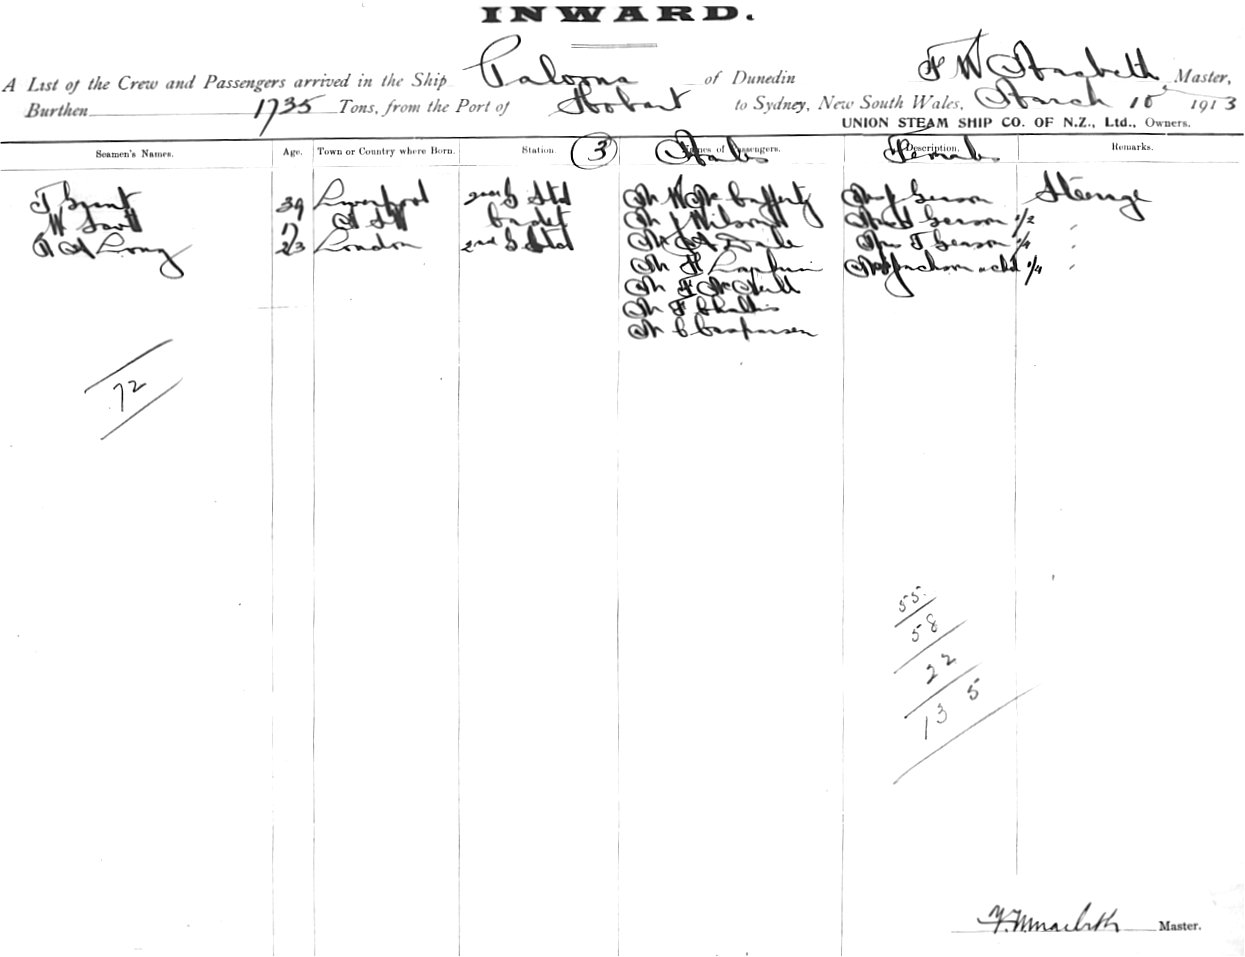 INWARD.
A List of the Crew and Passengers arrived in the Ship Paloona of Dunedin F W Macbeth Master,
Burthen 1735 Tons, from the Port of Hobart to Sydney, New South Wales, March 10 1913
UNION STEAM SHIP CO. OF N.Z., Ltd., Owners.
Seamen's Names. Age. Town or Country where Born. Station. 3 Names of Passengers. Males Description. Females Remarks.
39 Liverpool 2nd S Std Mr W McCafferty Steerage
W 17 N S W Cadet Mr J Wilson 1/2
A A Long 23 London 2nd S Std Mr A Dale Mr T 1/4
Mr H 1/4
Mr F McNeill
Mr F Challis
Mr C Casparsen
72
55
58
22
135
F. W. Macbeth Master.